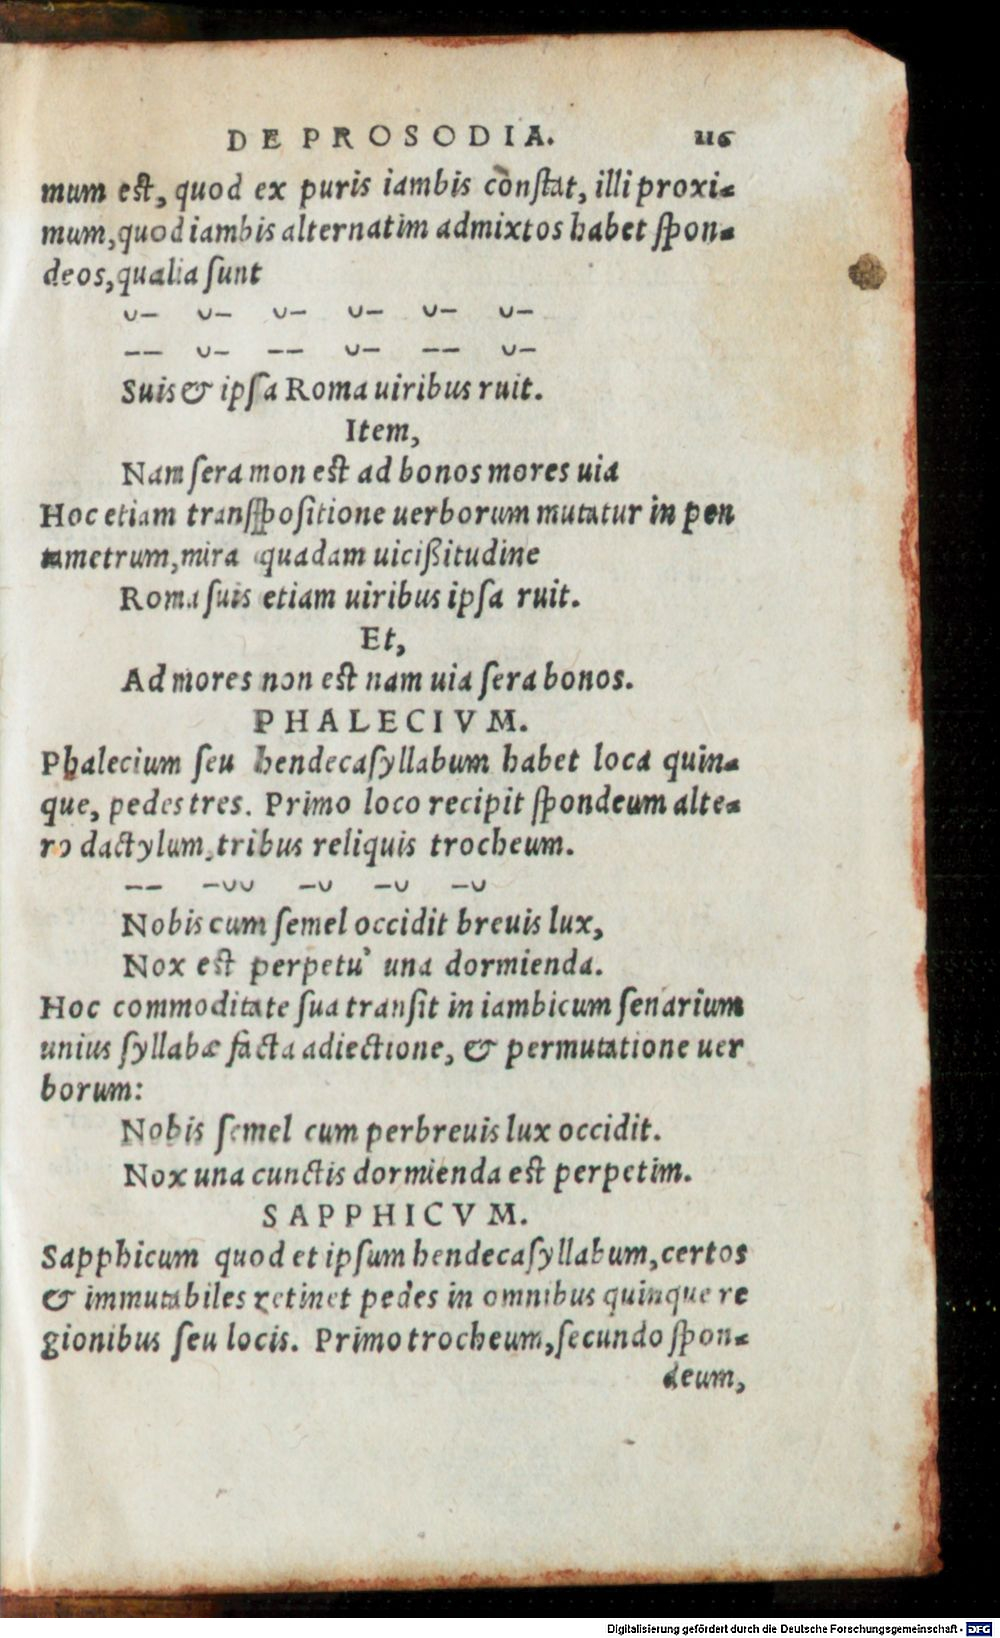 DE PROSODIA. 216
mum est, quod ex puris iambis constat, illi proxi-
mum, quod iambis alternatim admixtos habet spon-
deos, qualia sunt
∪– ∪– ∪– ∪– ∪– ∪–
–– ∪– –– ∪– –– ∪–
Suis & ipsa Roma uiribus ruit.
Item,
Nam sera mon est ad bonos mores uia
Hoc etiam transspositione uerborum mutatur in pen
tametrum, mira quadam uicißitudine
Roma suis etiam uiribus ipsa ruit.
Et,
Ad mores non est nam uia sera bonos.
PHALECIVM.
Phalecium seu hendecasyllabum habet loca quin-
que, pedes tres. Primo loco recipit spondeum alte-
ro dactylum, tribus reliquis trocheum.
–– –∪∪ –∪ –∪ –∪
Nobis cum semel occidit breuis lux,
Nox est perpetu' una dormienda.
Hoc commoditate sua transit in iambicum senarium
unius syllabæ facta adiectione, & permutatione uer
borum:
Nobis semel cum perbreuis lux occidit.
Nox una cunctis dormienda est perpetim.
SAPPHICVM.
Sapphicum quod et ipsum hendecasyllabum, certos
& immutabiles retinet pedes in omnibus quinque re
gionibus seu locis. Primo trocheum, secundo spon-
deum,
Digitalisierung gefördert durch die Deutsche Forschungsgemeinschaft - DFG